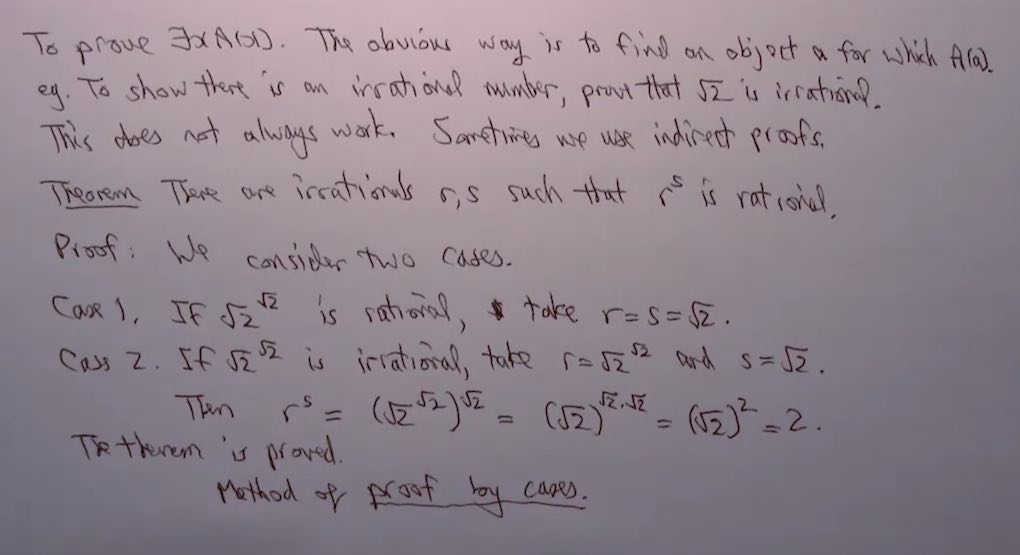 To prove ∃x A(x). The obvious way is to find an object a for which A(a).
eg. To show there is an irrational number, prove that √2 is irrational.
This does not always work. Sometimes we use indirect proofs.
Theorem There are irrationals r,s such that r^s is rational.
Proof: We consider two cases.
Case 1. If √2^√2 is rational, take r=s=√2.
Case 2. If √2^√2 is irrational, take r=√2^√2 and s=√2.
Then r^s = (√2^√2)^√2 = (√2)^(√2.√2) = (√2)^2 = 2.
The therem is proved.
Method of proof by cases.